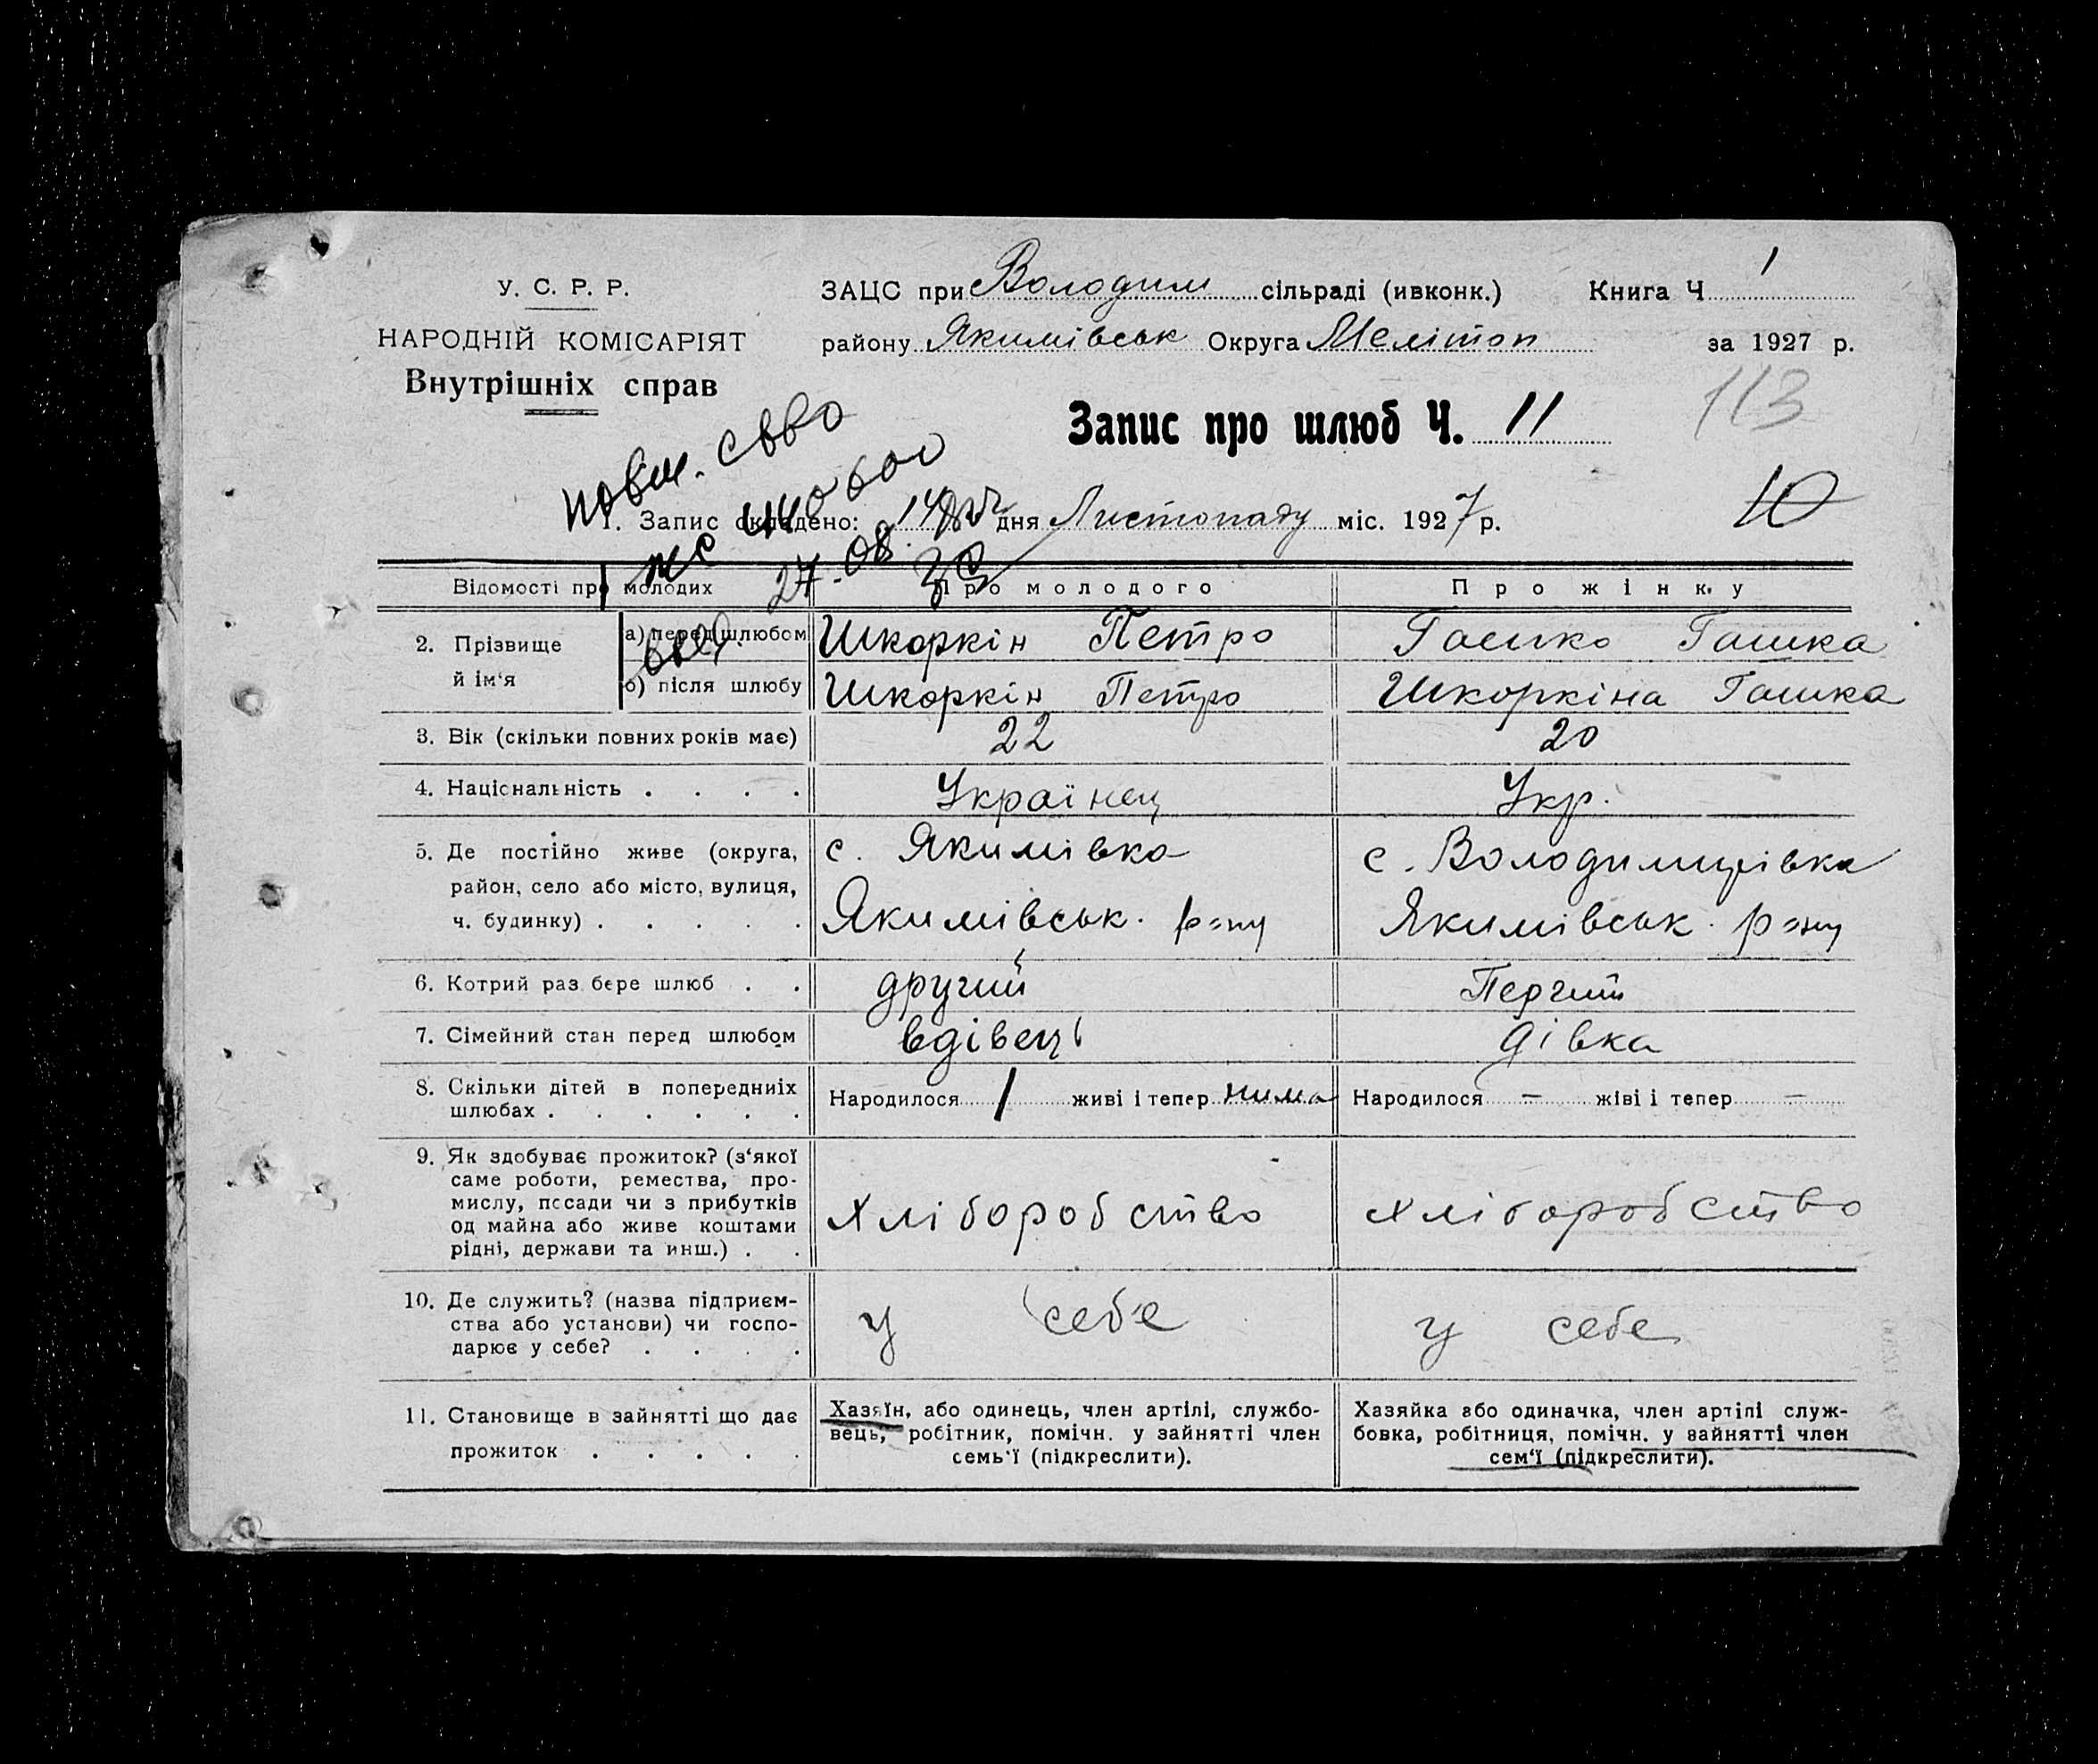 У. С. Р. Р.
НАРОДНІЙ КОМІСАРІЯТ
Внутрішніх справ
ЗАЦС при Володим сільраді (ивконк.) Книга Ч 1
району Якимівськ Округа Мелітоп за 1927 р.
113
Запис про шлюб Ч. 11
10
повт. св-во
27.08
1. Запис складено: 14 дня Листопаду міс. 1927 р.
Відомості про молодих Про молодого Про жінку
2. Прізвище й ім‘я
а) перед шлюбом Шкоркін Петро Гашка
б) після шлюбу Шкоркін Петро Шкоркіна Гашка
3. Вік (скільки повних років має) 22 20
4. Національність . . . . Українец Укр.
5. Де постійно живе (округа, с. Якимівка с. Володимирівка
район, село або місто, вулиця,
ч. будинку) . . . . . Якимівськ. р=ну Якимівськ. р=ну
6. Котрий раз бере шлюб . . другий Перчий
7. Сімейний стан перед шлюбом вдівець дівка
8. Скільки дітей в попередниіх
шлюбах . . . . . . Народилося 1 живі і тепер нима Народилося — жіві і тепер —
9. Як здобуває прожиток? (з‘якої
саме роботи, ремества, про-
мислу, посади чи з прибутків
од майна або живе коштами
рідні, держави та инш.) . . хліборобство хліборобство
10. Де служить? (назва підприєм-
ства або установи) чи госпо-
дарює у себе? . . . . у себе у себе
11. Становище в зайнятті що дає
прожиток . . . . .
Хазяїн, або одинець, член артілі, службо-
вець, робітник, помічн. у зайнятті член
семь‘ї (підкреслити).
Хазяйка або одиначка, член артілі служ-
бовка, робітниця, помічн. у зайнятті член
сем‘ї (підкреслити).